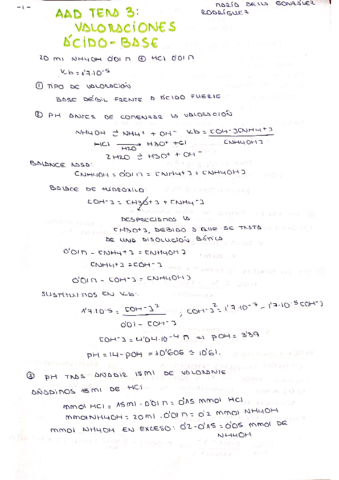 -1-
AAD TEMA 3:
VALORACIONES
ÁCIDO-BASE
RODRÍGUEZ
20 ml NH4OH 0'01 M HCl 0'01 M
Kb = 1'7·10⁻⁵
① TIPO DE VALORACIÓN
BASE DÉBIL FRENTE A ÁCIDO FUERTE
② PH ANTES DE COMENZAR LA VALORACIÓN
NH4OH ⇌ NH4⁺ + OH⁻ Kb = [OH⁻][NH4⁺]
HCl → H3O⁺ + Cl⁻ [NH4OH]
H2O
2H2O ⇌ H3O⁺ + OH⁻
BALANCE MASA:
CNH4OH = 0'01 M = [NH4⁺] + [NH4OH]
BALANCE DE HIDROXILO:
[OH⁻] = [H3O⁺] + [NH4⁺]
DESPRECIAMOS LA
[H3O⁺], DEBIDO A QUE SE TRATA
DE UNA DISOLUCIÓN BÁSICA
0'01 M - [NH4⁺] = [NH4OH]
[NH4⁺] = [OH⁻]
0'01 M - [OH⁻] = [NH4OH]
SUSTITUIMOS EN Kb:
1'7·10⁻⁵ = [OH⁻]² ; [OH⁻]² = 1'7·10⁻⁷ - 1'7·10⁻⁵ [OH⁻]
0'01 - [OH⁻]
[OH⁻] = 4'04·10⁻⁴ M ⇒ pOH = 3'39
PH = 14 - pOH = 10'606 ≈ 10'61.
③ PH TRAS AÑADIR 15 ml DE VALORANTE
AÑADIMOS 15 ml DE HCl
mmol HCl = 15 ml · 0'01 M = 0'15 mmol HCl
mmol NH4OH = 20 ml · 0'01 M = 0'2 mmol NH4OH
mmol NH4OH EN EXCESO: 0'2 - 0'15 = 0'05 mmol DE
NH4OH